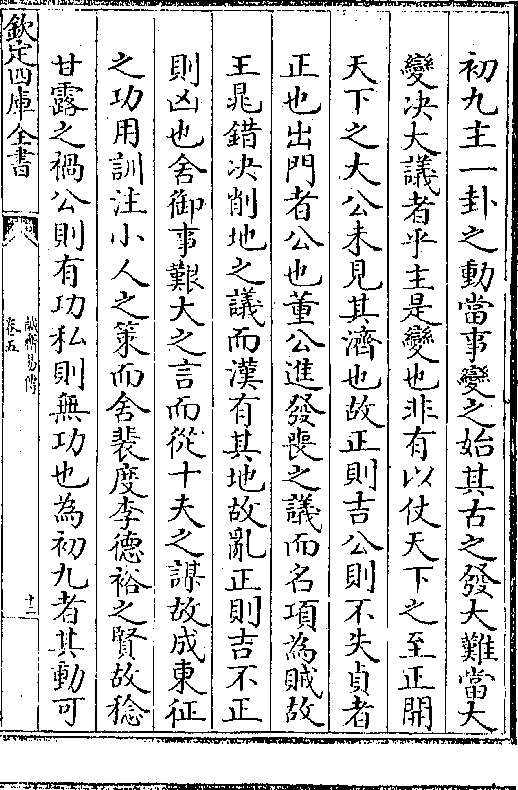 初九主一卦之動當事變之始其古之發大難當大
變决大議者乎主是變也非有以仗天下之至正開
天下之大公未見其濟也故正則吉公則不失貞者
正也出門者公也董公進發喪之議而名項為賊故
王鼂錯决削地之議而漢有其地故亂正則吉不正
則凶也舍御事艱大之言而從十夫之謀故成東征
之功用訓注小人之策而舍裴度李德裕之賢故稔
甘露之禍公則有功私則無功也為初九者其動可
欽定四庫全書
誠齋易傳
卷五
十三